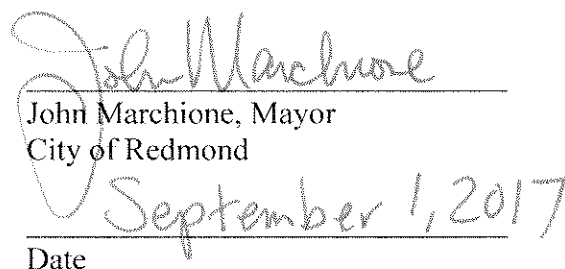 John Marchione
John Marchione, Mayor
City of Redmond
September 1, 2017
Date